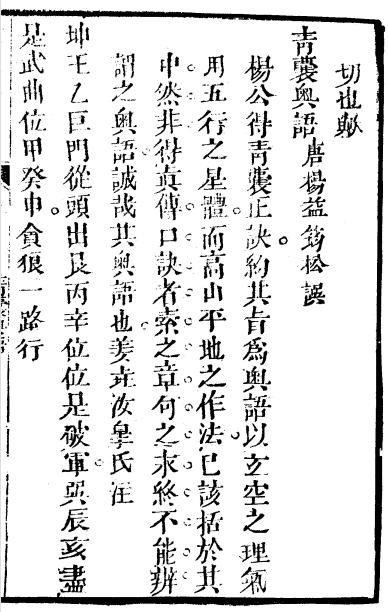 切也歟
青囊奧語 唐楊益筠松譔
楊公得青囊正訣約其旨為奧語以玄空之理氣
用五行之星體而高山平地之作法已該括於其
中然非得眞傳口訣者索之章句之末終不能辨
謂之奧語誠哉其奧語也姜垚汝皋氏注
坤壬乙巨門從頭出艮丙辛位位是破軍巽辰亥盡
是武曲位甲癸申貪狼一路行